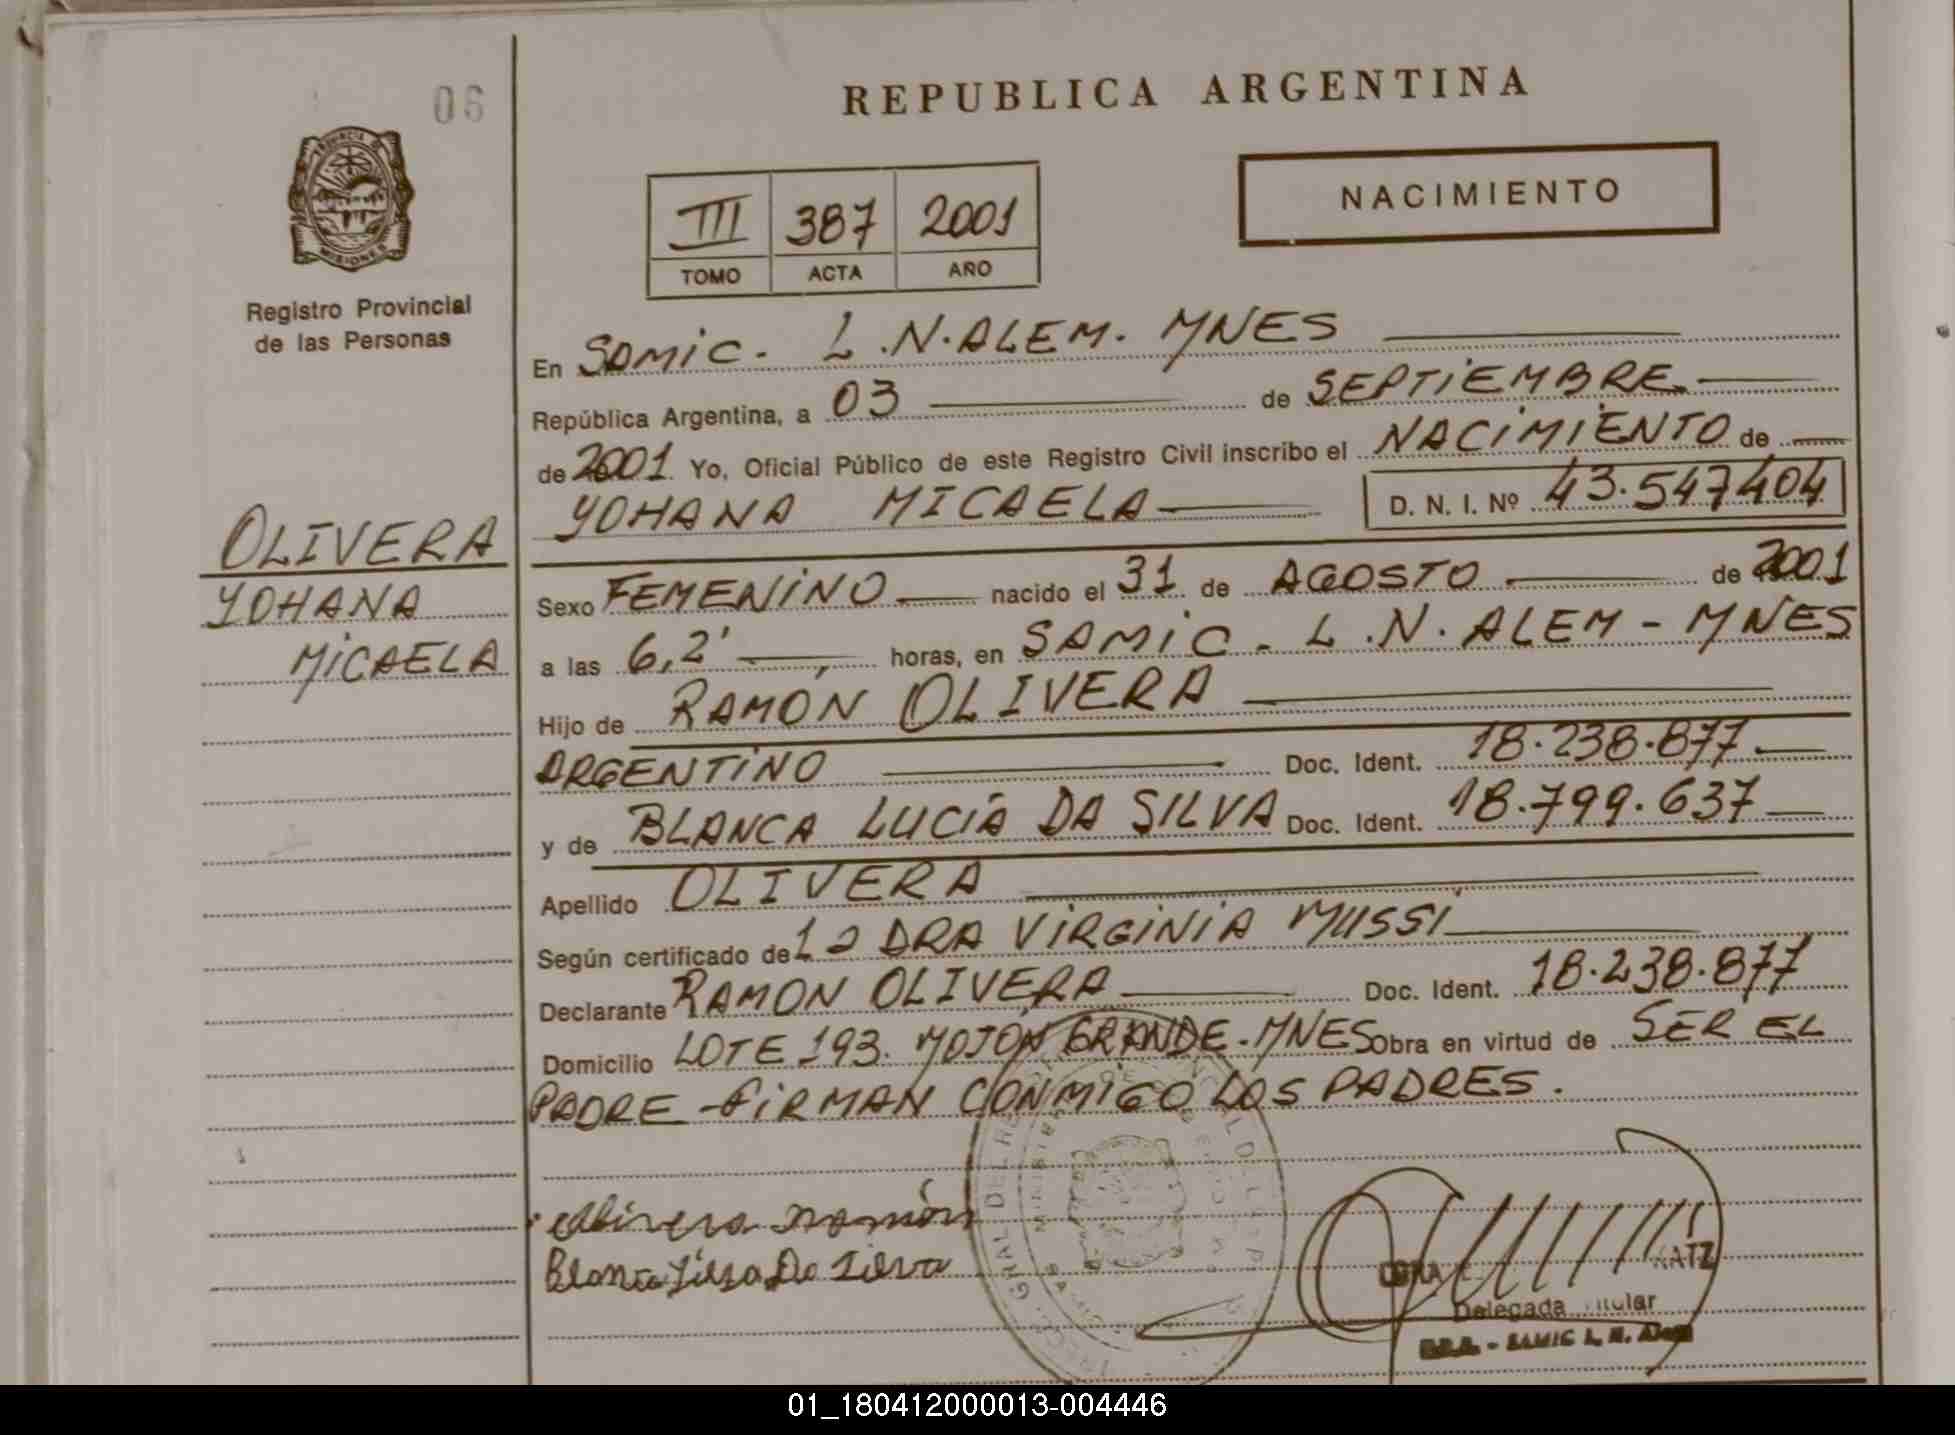 06
REPUBLICA ARGENTINA
PROVINCIA DE
MISIONES
Registro Provincial
de las Personas
NACIMIENTO
III 387 2001
TOMO ACTA AÑO
En SAMIC. L.N.ALEM. MNES
República Argentina, a 03 de SEPTIEMBRE
de 2001 Yo, Oficial Público de este Registro Civil inscribo el NACIMIENTO de
YOHANA MICAELA D. N. I. Nº 43.547404
OLIVERA
YOHANA
MICAELA
Sexo FEMENINO nacido el 31 de AGOSTO de 2001
a las 6,2' horas, en SAMIC - L.N. ALEM - MNES
Hijo de RAMÓN OLIVERA
ARGENTINO Doc. Ident. 18.238.877
y de BLANCA LUCÍA DA SILVA Doc. Ident. 18.799.637
Apellido OLIVERA
Según certificado de La DRA VIRGINIA MUSSI
Declarante RAMON OLIVERA Doc. Ident. 18.238.877
Domicilio LOTE 193. MOJON GRANDE-MNES Obra en virtud de SER EL
PADRE - FIRMAN CONMIGO LOS PADRES.
Olivera Ramón
Blanca Da Silva
Delegada Titular
SAMIC L. N. Alem
01_180412000013-004446